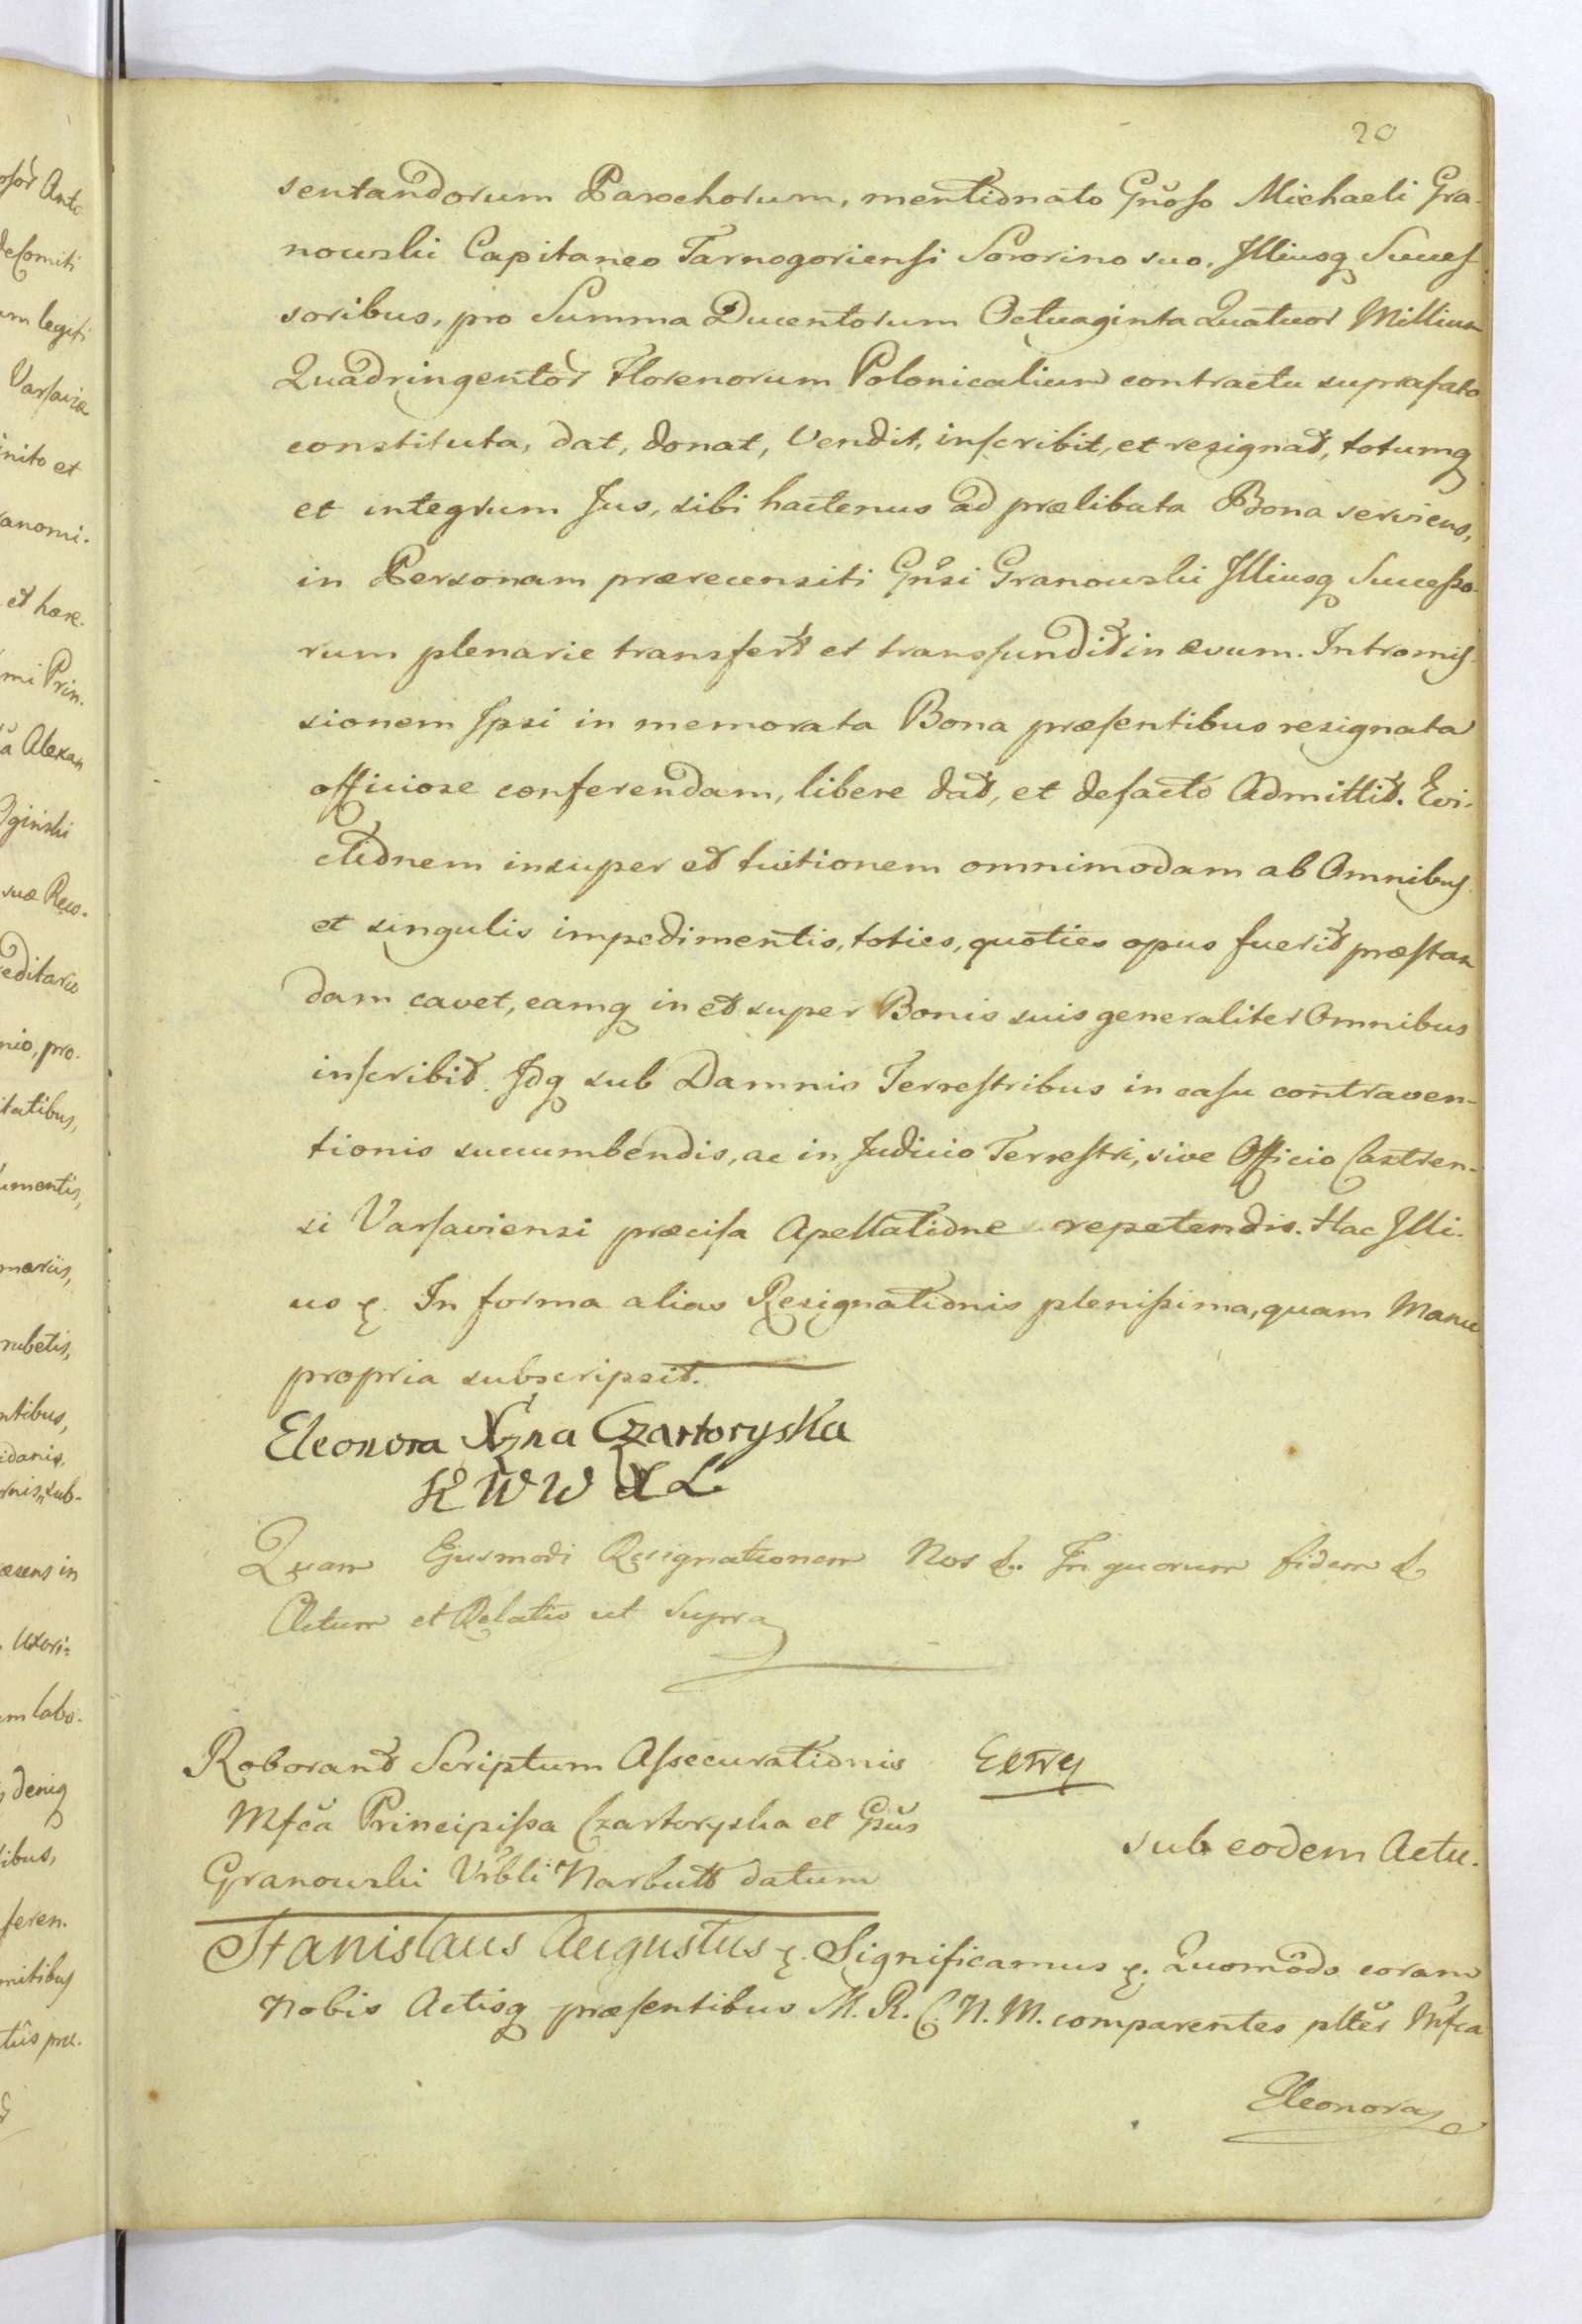 20
sentandorum Parochorum, mentionato Gnoso Michaeli Gra-
nowski Capitaneo Tarnogoriensi Sororino suo, Illiusq Succes-
soribus, pro Summa Ducentorum Octuaginta Quatuor Millium
Quadringentor Florenorum Polonicalium contractu suprafato
constituta, dat, donat, Vendit, inscribit, et resignat, totumq
et integrum Jus, sibi hactenus ad prælibata Bona serviens,
in Personam prærecensiti Gnsi Granowski Illiusq Successo-
rum plenarie transfert et transfundit in ævum. Intromis-
sionem Ipsi in memorata Bona præsentibus resignata
officiose conferendam, libere dat, et defacto Admittit. Evi-
ctionem insuper et tuitionem omnimodam ab Omnibus
et singulis impedimentis, toties, quoties opus fuerit præstan
dam cavet, eamq in et super Bonis suis generaliter Omnibus
inscribit. Idq sub Damnis Terrestribus in casu contraven-
tionis succumbendis, ac in Judicio Terrestri, sive Officio Castren-
si Varsaviensi præcisa Apellatione repetendis. Hac Illi-
us &. In forma alias Resignationis plenissima, quam Manu
propria subscripsit.
Eleonora Xzna Czartoryska
K W W X L
Quam Ejusmodi Resignationem Nos &. In quorum fidem &
Actum et Relatio ut Supra
Roborant Scriptum Assecurationis
Mfca Principissa Czartoryska et Gsus
Granowski Urbli Narbutt datum
Extry
sub eodem Actu.
Stanislaus Augustus &. Significamus &. Quomodo coram
Nobis Actisq præsentibus M. R. C. N. M. comparentes plter Mfca
Eleonora